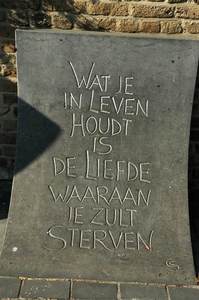 WAT JE
IN LEVEN
HOUDT
IS
DE LIEFDE
WAARAAN
JE ZULT
STERVEN